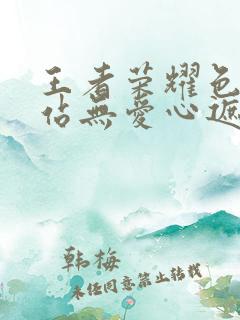 王者荣耀色
佔無愛心遮
韩梅
未经同意禁止转载